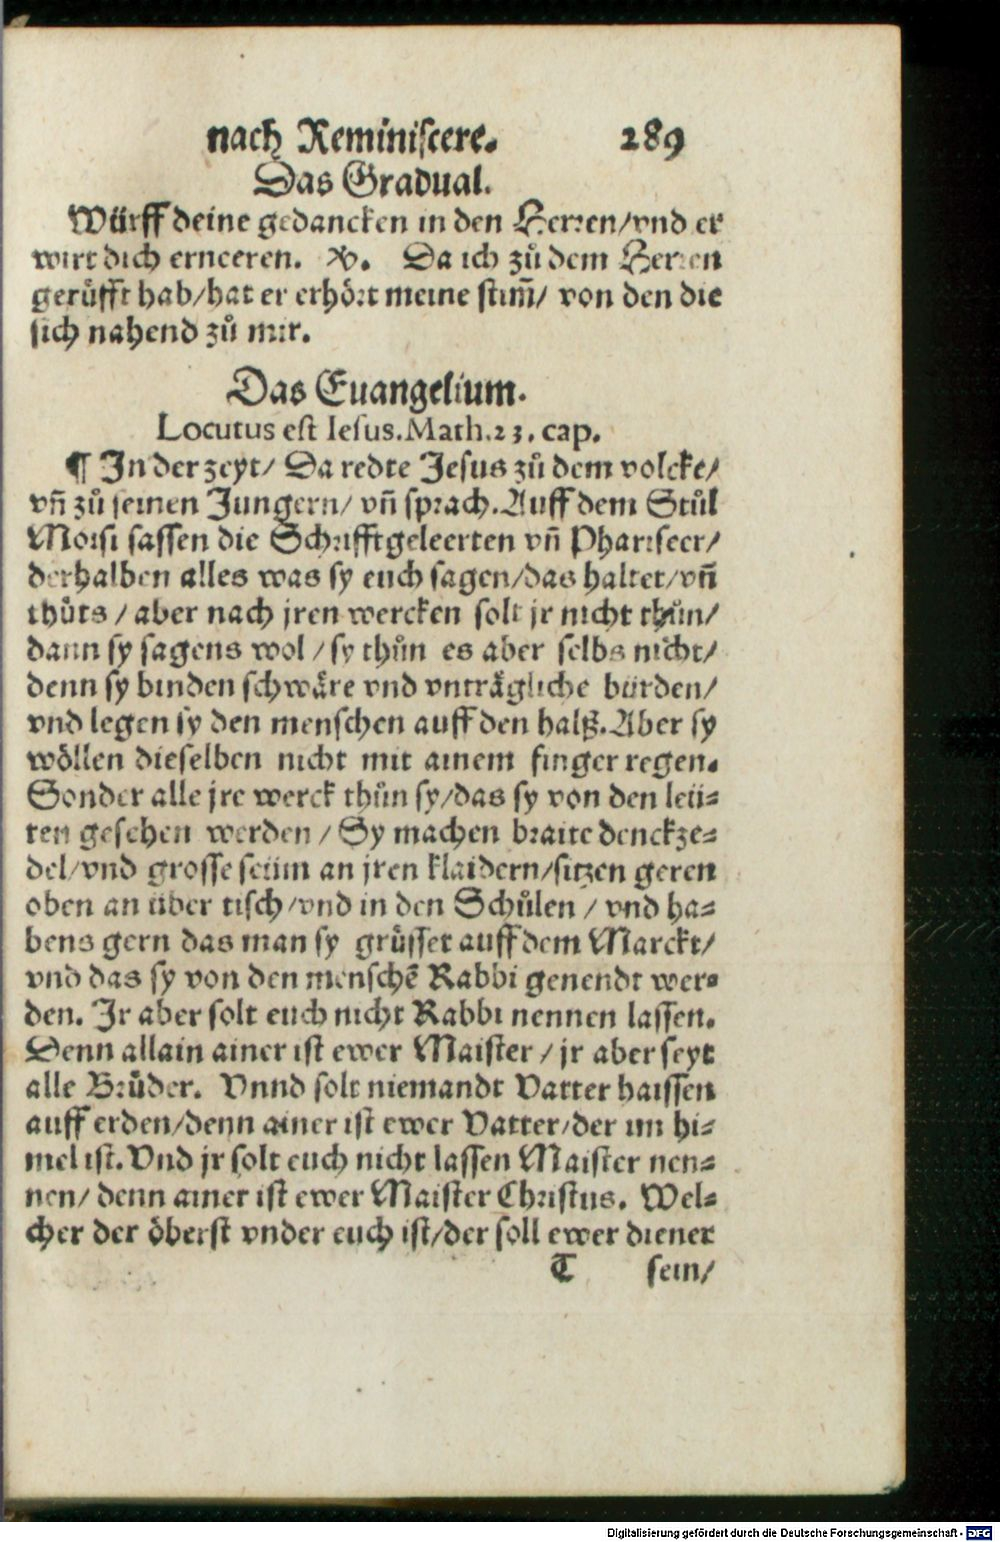 nach Reminiscere. 289
Das Gradual.
Würff deine gedancken in den Herren/vnd er
wirt dich erneeren. ℣. Da ich zů dem Herren
gerůfft hab/hat er erhört meine stim̃/ von den die
sich nahend zů mir.
Das Euangelium.
Locutus est Iesus.Math.23. cap.
¶ In der zeyt/ Da redte Jesus zů dem volcke/
vñ zů seinen Jungern/ vñ sprach.Auff dem Stůl
Moisi sassen die Schrifftgeleerten vñ Phariseer/
derhalben alles was sy euch sagen/das haltet/vñ
thůts / aber nach jren wercken solt jr nicht thůn/
dann sy sagens wol / sy thůn es aber selbs nicht/
denn sy binden schwäre vnd vnträgliche bürden/
vnd legen sy den menschen auff den halß.Aber sy
wöllen dieselben nicht mit ainem finger regen.
Sonder alle jre werck thůn sy/das sy von den leü=
ten gesehen werden / Sy machen braite denckze=
del/vnd grosse seüm an jren klaidern/sitzen geren
oben an über tisch/vnd in den Schůlen / vnd ha=
bens gern das man sy grüsset auff dem Marckt/
vnd das sy von den menschẽ Rabbi genendt wer=
den. Jr aber solt euch nicht Rabbi nennen lassen.
Denn allain ainer ist ewer Maister / jr aber seyt
alle Brüder. Vnnd solt niemandt Vatter haissen
auff erden/denn ainer ist ewer Vatter/der im hi=
mel ist.Vnd jr solt euch nicht lassen Maister nen=
nen/ denn ainer ist ewer Maister Christus. Wel=
cher der öberst vnder euch ist/der soll ewer diener
T sein/
Digitalisierung gefördert durch die Deutsche Forschungsgemeinschaft - DFG